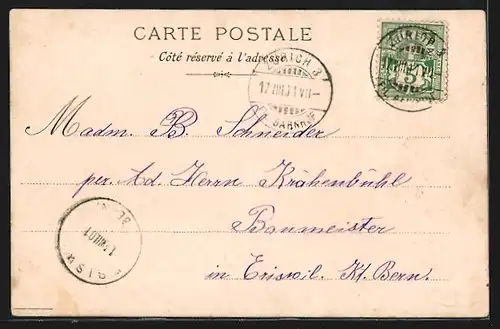 CARTE POSTALE
Côté réservé à l'adresse.
ZÜRICH 3
17.VIII.01.VII-
BAHNHOF
ZÜRICH 3
5
BAHNHOF
Madm. B. Schneider
per Ad. Herrn Krähenbühl
Baumeister
in Eriswil. Kt. Bern.
VIII.01